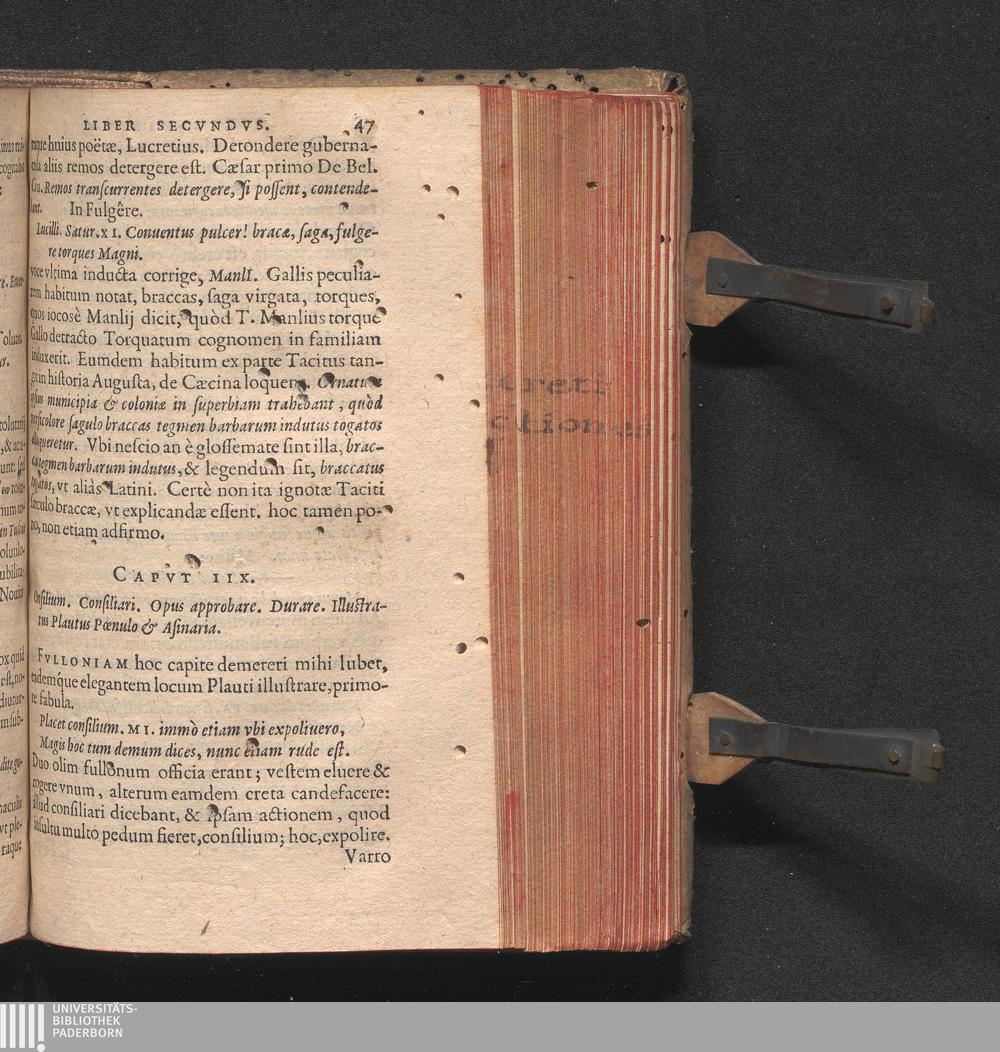 LIBER SECVNDVS. 47
huius poëtæ, Lucretius. Detondere guberna-
aliis remos detergere est. Cæsar primo De Bel.
Ciu. Remos transcurrentes detergere, si possent, contende-
In Fulgêre.
Lucilli. Satur. XI. Conuentus pulcer! bracæ, saga, fulge-
re torques Magni.
voce vltima inducta corrige, ManlI. Gallis peculia-
rem habitum notat, braccas, saga virgata, torques,
quos iocosè Manlij dicit, quòd T. Manlius torque
Gallo detracto Torquatum cognomen in familiam
induxerit. Eumdem habitum ex parte Tacitus tan-
historia Augusta, de Cæcina loquens. Ornatum
ipsius municipia & coloniæ in superbiam trahebant, quòd
versicolore sagulo braccas tegmen barbarum indutus togatos
alloqueretur. Vbi nescio an è glossemate sint illa, brac-
cas tegmen barbarum indutus, & legendum sit, braccatus
togatos, vt aliàs Latini. Certè non ita ignotæ Taciti
sæculo braccæ, vt explicandæ essent. hoc tamen po-
no, non etiam adfirmo.
CAPVT IIX.
Consilium. Consiliari. Opus approbare. Durare. Illustra-
tus Plautus Pœnulo & Asinaria.
FVLLONIAM hoc capite demereri mihi lubet,
eademque elegantem locum Plauti illustrare, primo-
re fabula.
Placet consilium. MI. immò etiam vbi expoliuero,
Magis hoc tum demum dices, nunc etiam rude est.
Duo olim fullonum officia erant; vestem eluere &
cogere vnum, alterum eamdem creta candefacere:
illud consiliari dicebant, & ipsam actionem, quod
insultu multo pedum fieret, consilium; hoc, expolire.
Varro
ctiones
UNIVERSITÄTS-
BIBLIOTHEK
PADERBORN